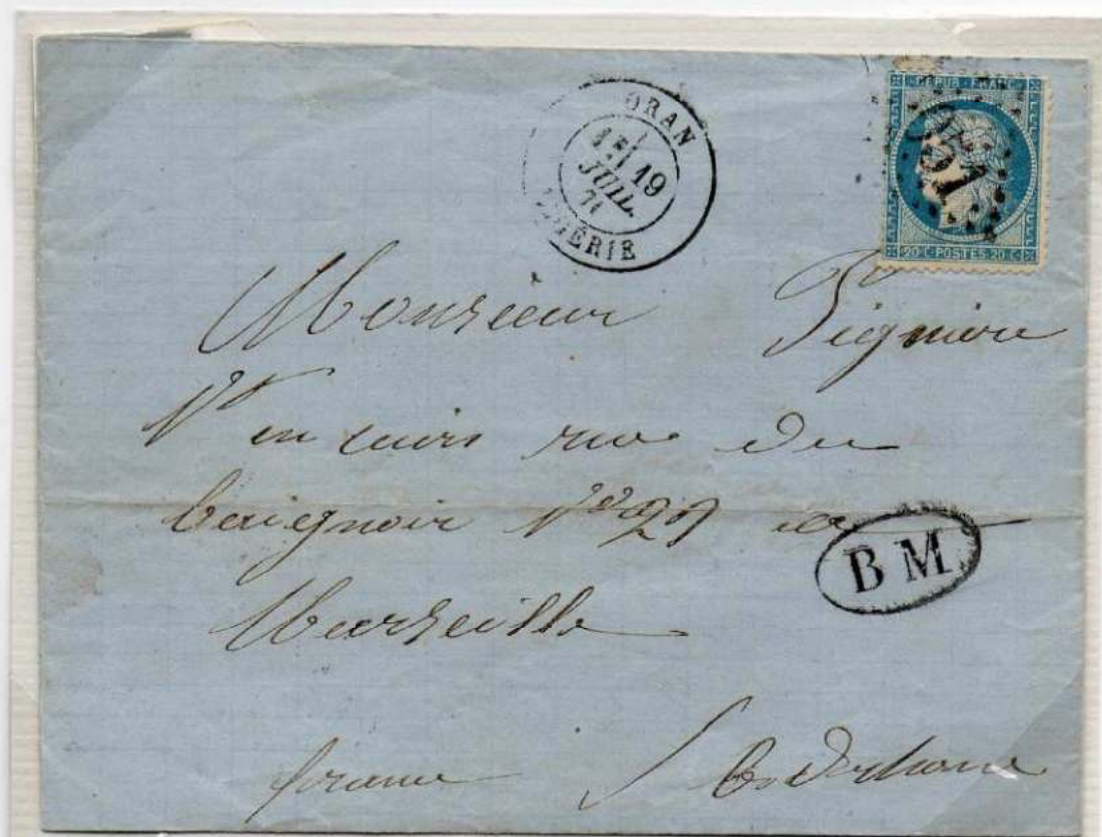 ORAN
1E/ 19
JUIL.
71
ALGÉRIE
REPUB · FRANC
5051
20 C · POSTES · 20 C
Monsieur Pignière
en cuirs rue du
baignoir N° 29 a
Marseille
B M
france B. du Rhone